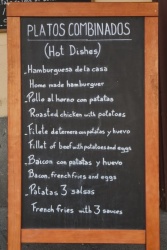 PLATOS COMBINADOS
(Hot Dishes)
-Hamburguesa de la casa
Home made hamburguer
-Pollo al horno con patatas
Roasted chicken with potatoes
-Filete de ternera con patatas y huevo
Fillet of beef with potatoes and eggs
-Baicos con patatas y huevo
Bacon, french fries and eggs
-Patatas 3 salsas
French fries with 3 sauces